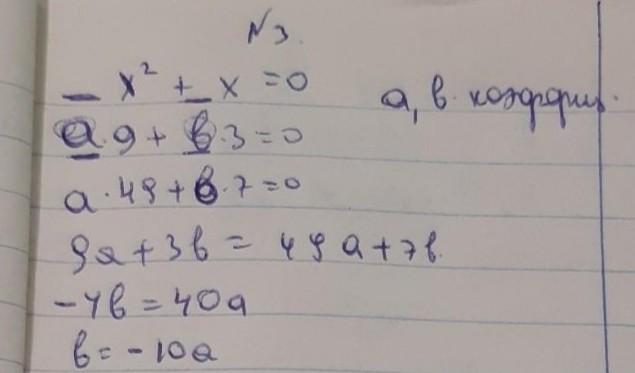 N3.
_ x² + _ x = 0
a, в коэффиц.
a·9 + в·3 = 0
a·49 + в·7 = 0
9a + 3в = 49a + 7в
-4в = 40a
в = -10a